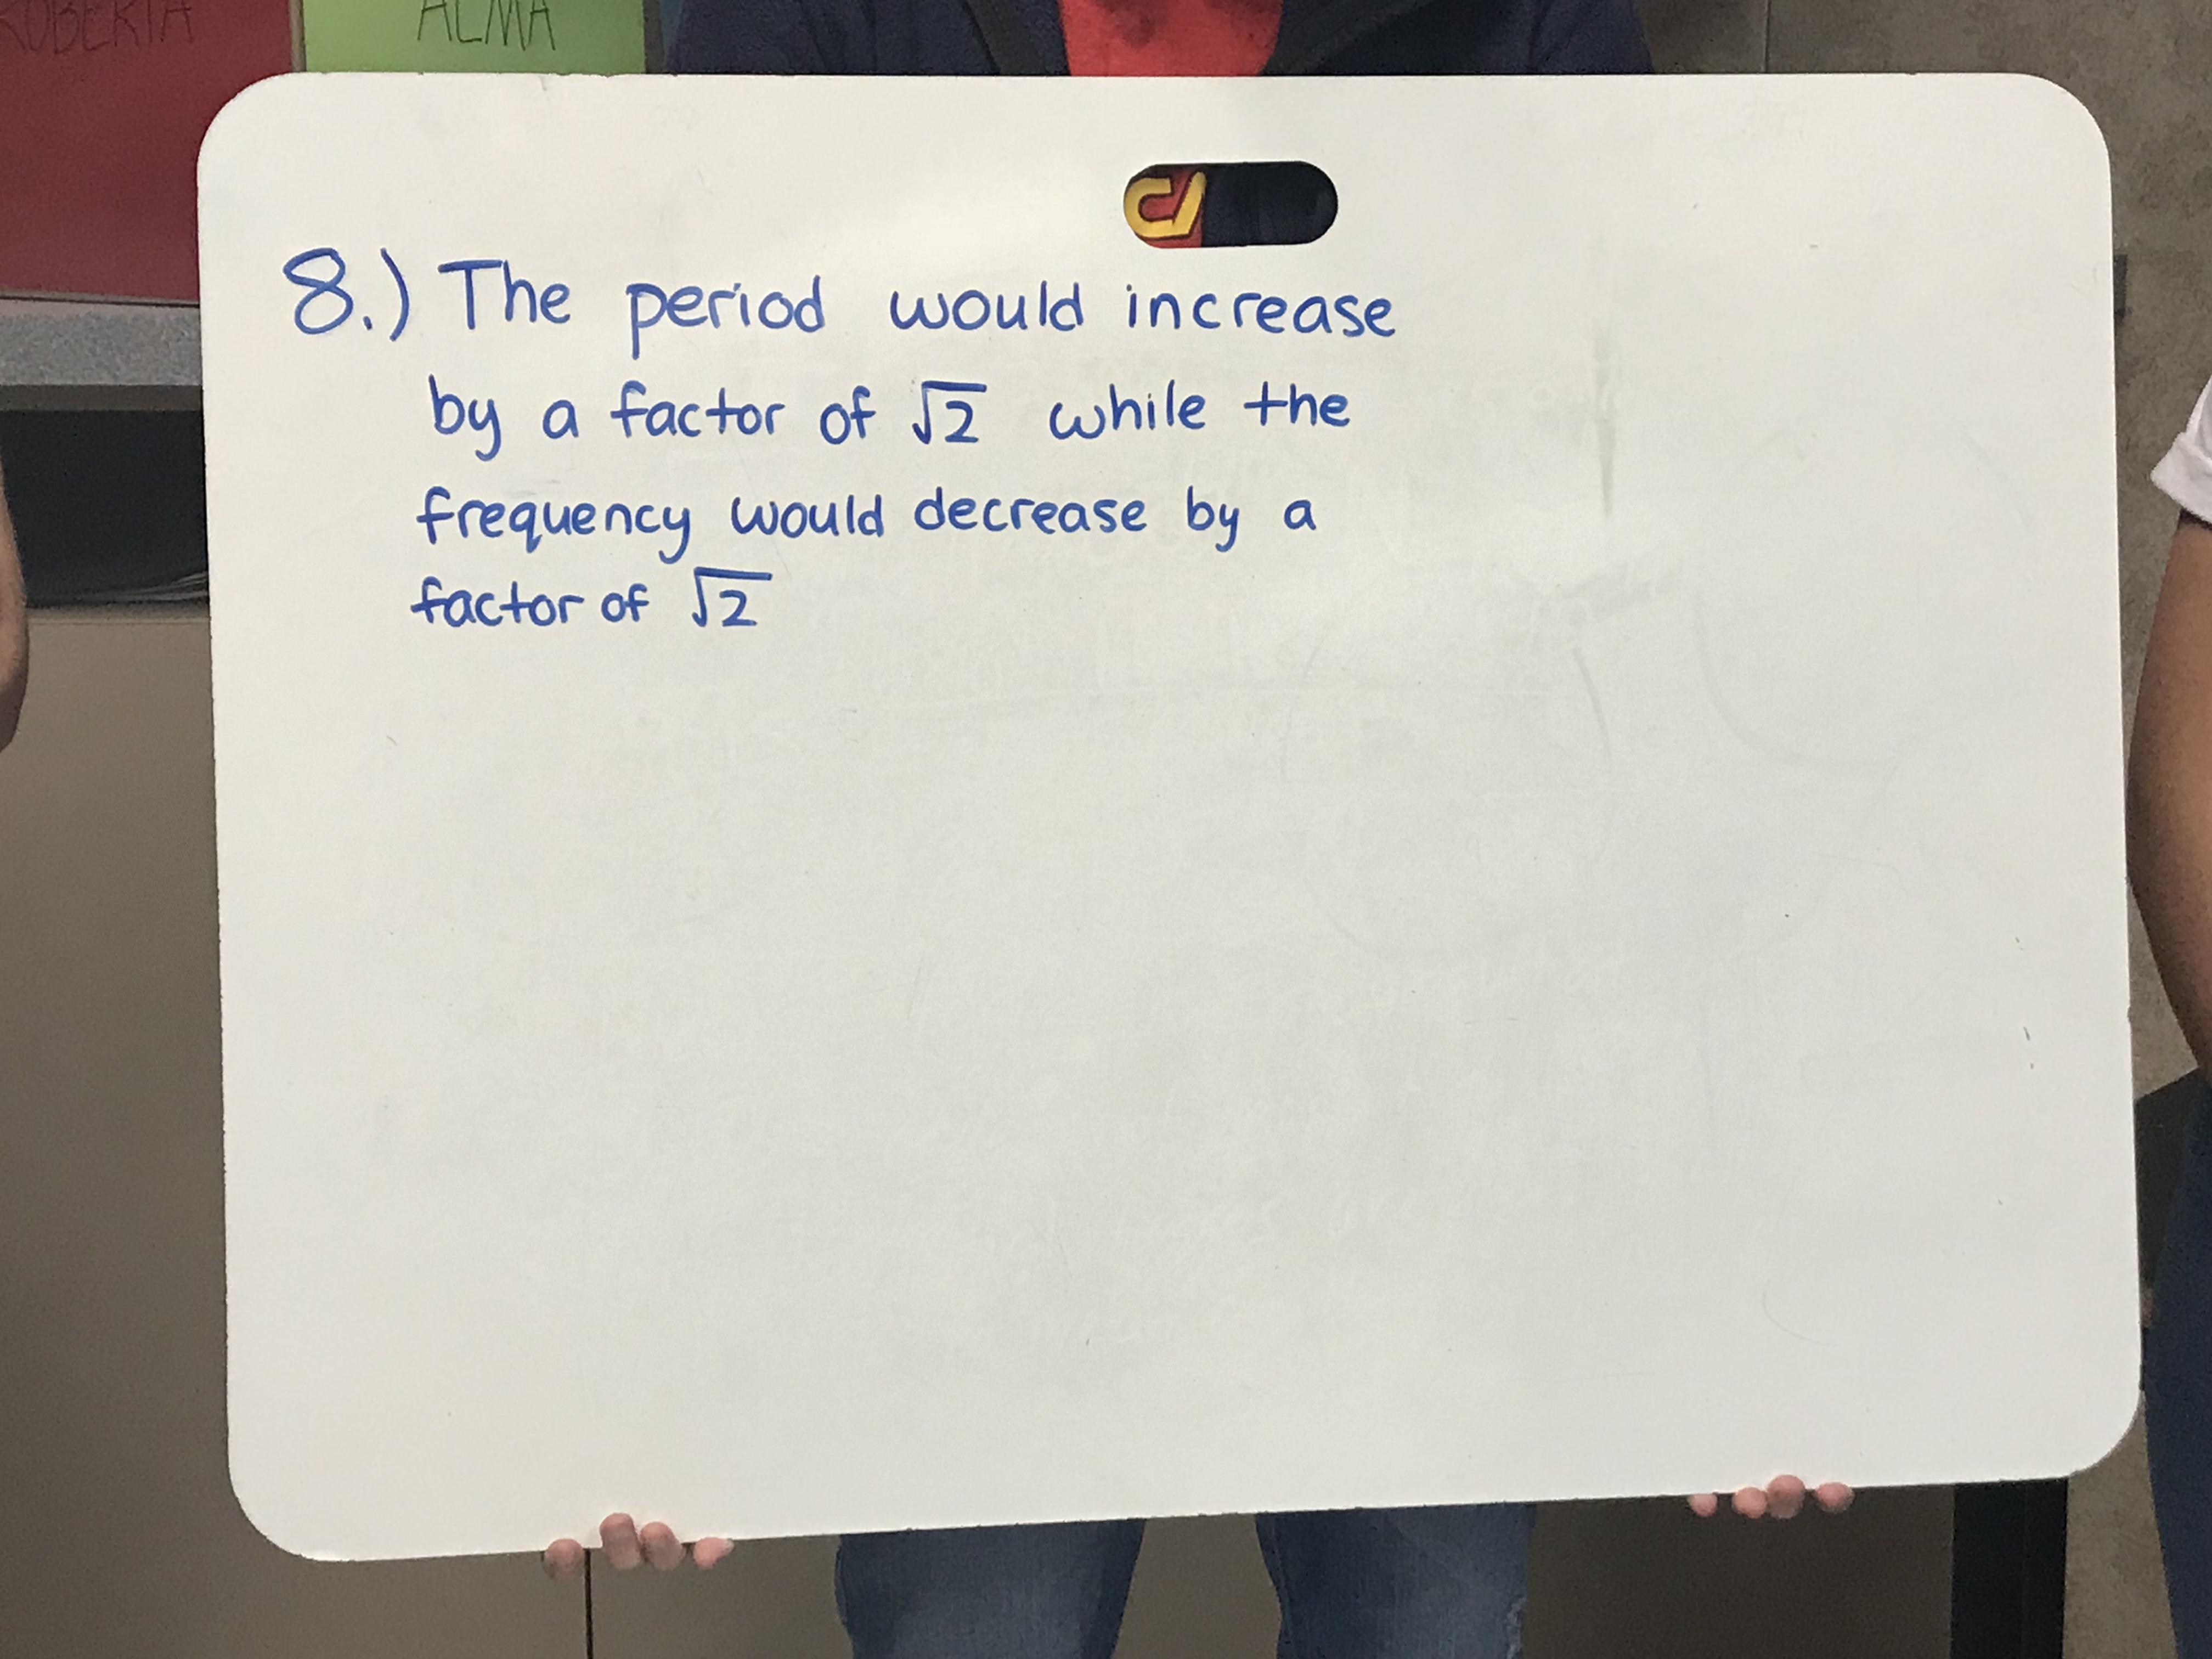 ROBERTA
ALMA
8.) The period would increase
by a factor of √2 while the
frequency would decrease by a
factor of √2